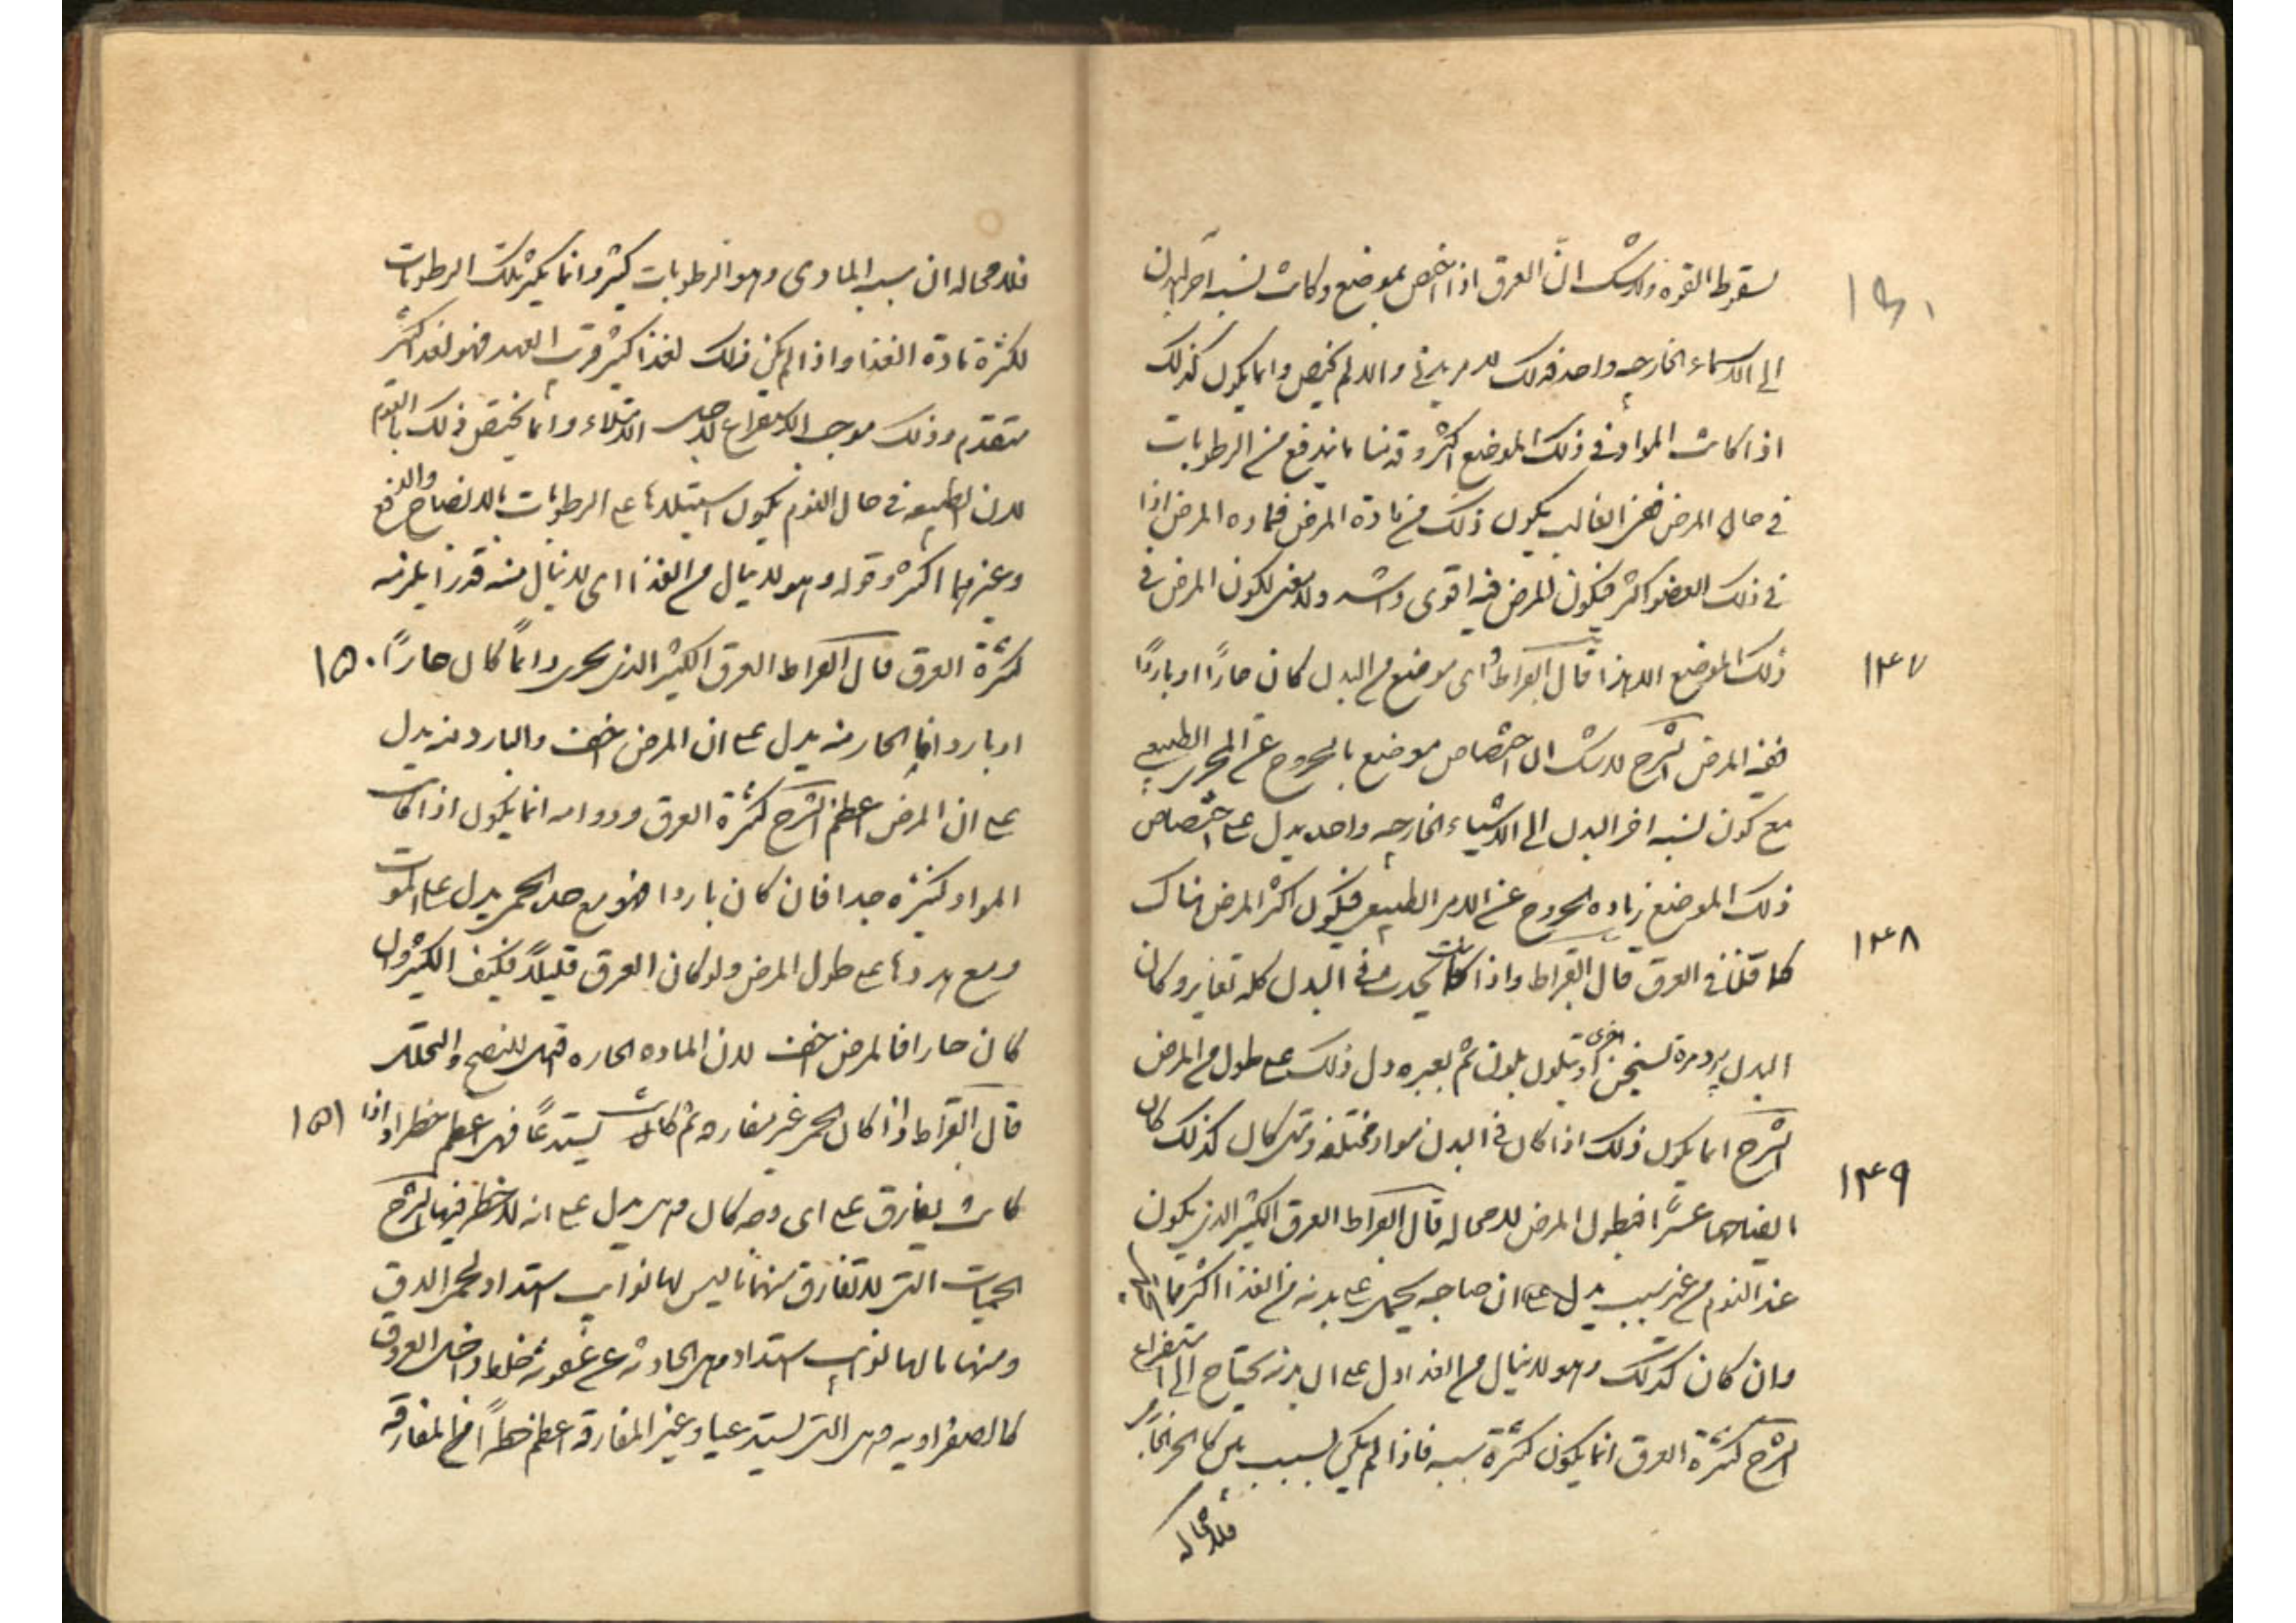 لسقوط القوة ولا شك ان العرق اذا اختص بموضع وكانت نسبة اجزاء البدن
الى الاشياء الخارجه واحد فذلك لامر بدنى والا لم يختص وانما يكون كذلك
اذا كانت المواد فى ذلك الموضع اكثر وقد بينا ما يندفع من الرطوبات
فى حال المرض ففى الغالب يكون ذلك من مادة المرض فمادة المرض اذا
فى ذلك العضو اكثر فيكون المرض فيه اقوى واشد ولا معنى لكون المرض فى
١٤٧
ذلك الموضع الا هذا قال ابقراط واى موضع من البدن كان حارًا او باردًا
ففيه المرض الشرح لا شك ان اختصاص موضع بالخروج عن المجرى الطبيعى
مع كون نسبة اجزاء البدن الى الاشياء الخارجه واحد يدل على اختصاص
ذلك الموضع زياده الخروج عن الامر الطبيعى فيكون اكثر المرض هناك
١٤٨
كما قلنا فى العرق قال ابقراط واذا كانت تحدث فى البدن كله تغاير وكان
البدن يبرد مرة ويسخن اخرى او يتلون بلون ثم بغيره دل ذلك على طول من المرض
الشرح انما يكون ذلك اذا كان فى البدن مواد مختلفه ومتى كان كذلك كان
١٤٩
انضاجها عسرًا فيطول المرض لا محاله قال ابقراط العرق الكثير الذى يكون
عند النوم من غير سبب يدل على ان صاحبه يحمل على بدنه من الغذا اكثر مما
وان كان كذلك وهو لا ينال من الغذا دل على ان بدنه يحتاج الى استفراغ
الشرح كثرة العرق انما يكون لكثرة سببه فاذا لم يكن لسبب
فلا محاله
فلا محاله ان سببه المادى وهو الرطوبات كثير وانما يكثر تلك الرطوبات
لكثرة مادة الغذا واذا لم يكن ذلك لغذا كثير قريب العهد فهو لغذا كثير
متقدم وذلك موجب الاستفراغ لاجل الامتلاء وانما يختص ذلك بالنوم
لان الطبيعه فى حال النوم يكون استيلاءها على الرطوبات بالانضاج والدفع
وغيرهما اكثر وقوله وهو لا ينال من الغذا اى لا ينال منه قدرا يلزمه
كثرة العرق قال ابقراط العرق الكثير الذى يجرى دائمًا كان حارًا ١٥٠
او باردا فالحار منه يدل على ان المرض اخف والبارد منه يدل
على ان المرض اعظم الشرح كثرة العرق ودوامه انما يكون اذا كانت
المواد كثيرة جدا فان كان باردا فهو مع حدة الحمى يدل على الموت
ومع هدوها على طول المرض ولو كان العرق قليلاً فكيف الكثير وان
كان حارا فالمرض اخف لان الماده الحاره للنضج والتحلل
قال ابقراط اذا كان الحمى غير مفارقه ثم كانت تشتد غبًا فهى اعظم خطرا واذا ١٥١
كانت يفارق على اى وجه كان فهى يدل على انه لا خطر فيها الشرح
الحميات التى لا تفارق منها ما ليس لها نوايب اشتداد كحمى الدق
ومنها ما لها نوايب اشتداد وهى الحادثه عن عفونة خلط داخل العروق
كالصفراويه وهى التى تشتد غبا وغير المفارقه اعظم خطرًا من المفارقه